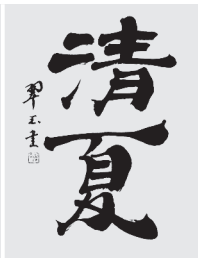 清夏
翠玉書